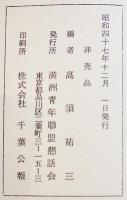 昭和四十七年十二月 一日発行
非売品
編者 高須祐三
発行所 満洲青年聯盟懇話会
東京都品川区二葉町三-一五-三
印刷所 株式会社 千葉公報